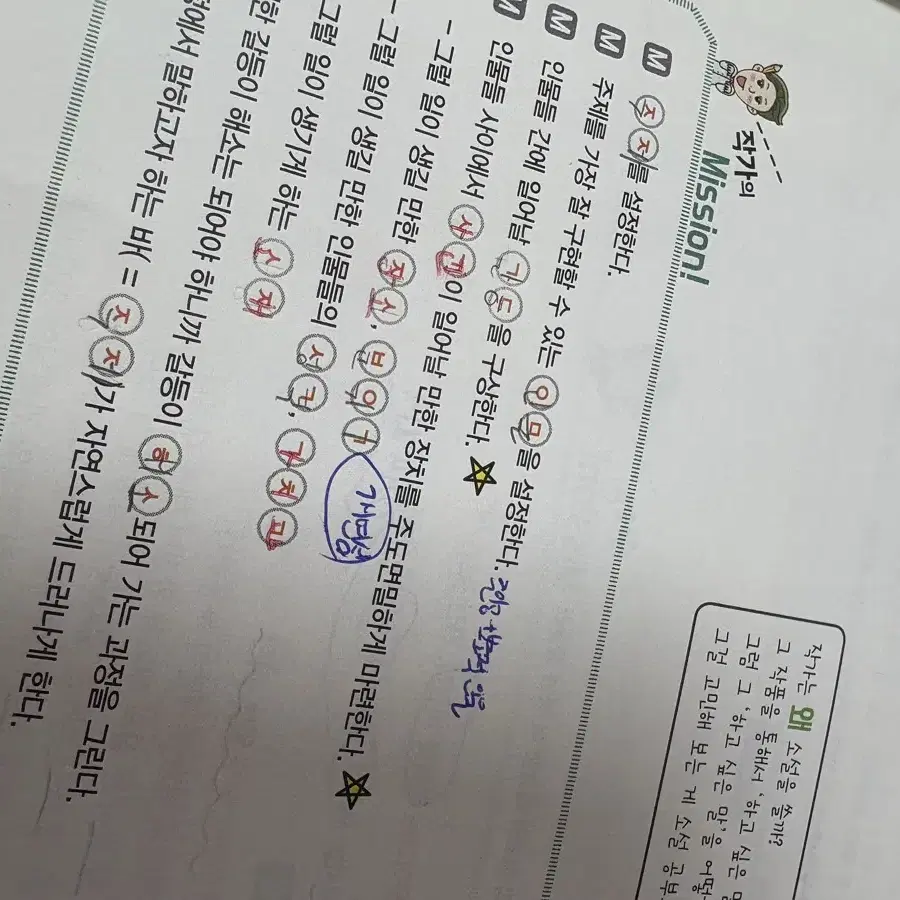 작가의
Mission!
M 주제를 설정한다.
M 주제를 가장 잘 구현할 수 있는 인물을 설정한다.
M 인물들 간에 일어날 갈등을 구상한다.
M 인물들 사이에서 사건이 일어날 만한 장치를 주도면밀하게 마련한다.
- 그럴 일이 생길 만한 장소, 분위기
- 그럴 일이 생길 만한 인물들의 성격, 가치관
그럴 일이 생기게 하는 소재
한 갈등이 해소는 되어야 하니까 갈등이 해소되어 가는 과정을 그린다.
에서 말하고자 하는 바 = 주제가 자연스럽게 드러나게 한다.
작가는 왜 소설을 쓸까?
그 작품을 통해서 '하고 싶은
그럼 그 '하고 싶은 말'을
그걸 고민해 보는 게 소설 공부